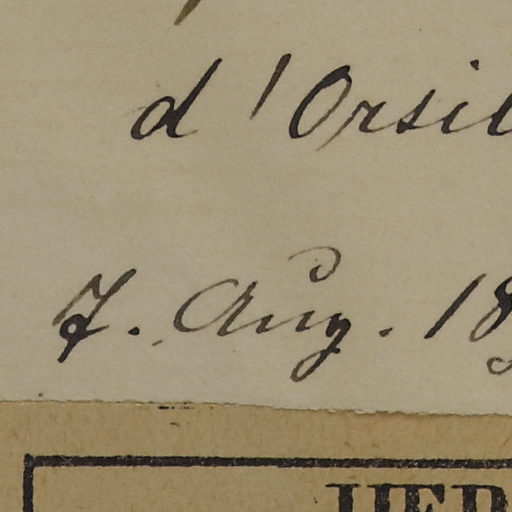 d'Orsi
7. Aug. 18
HER